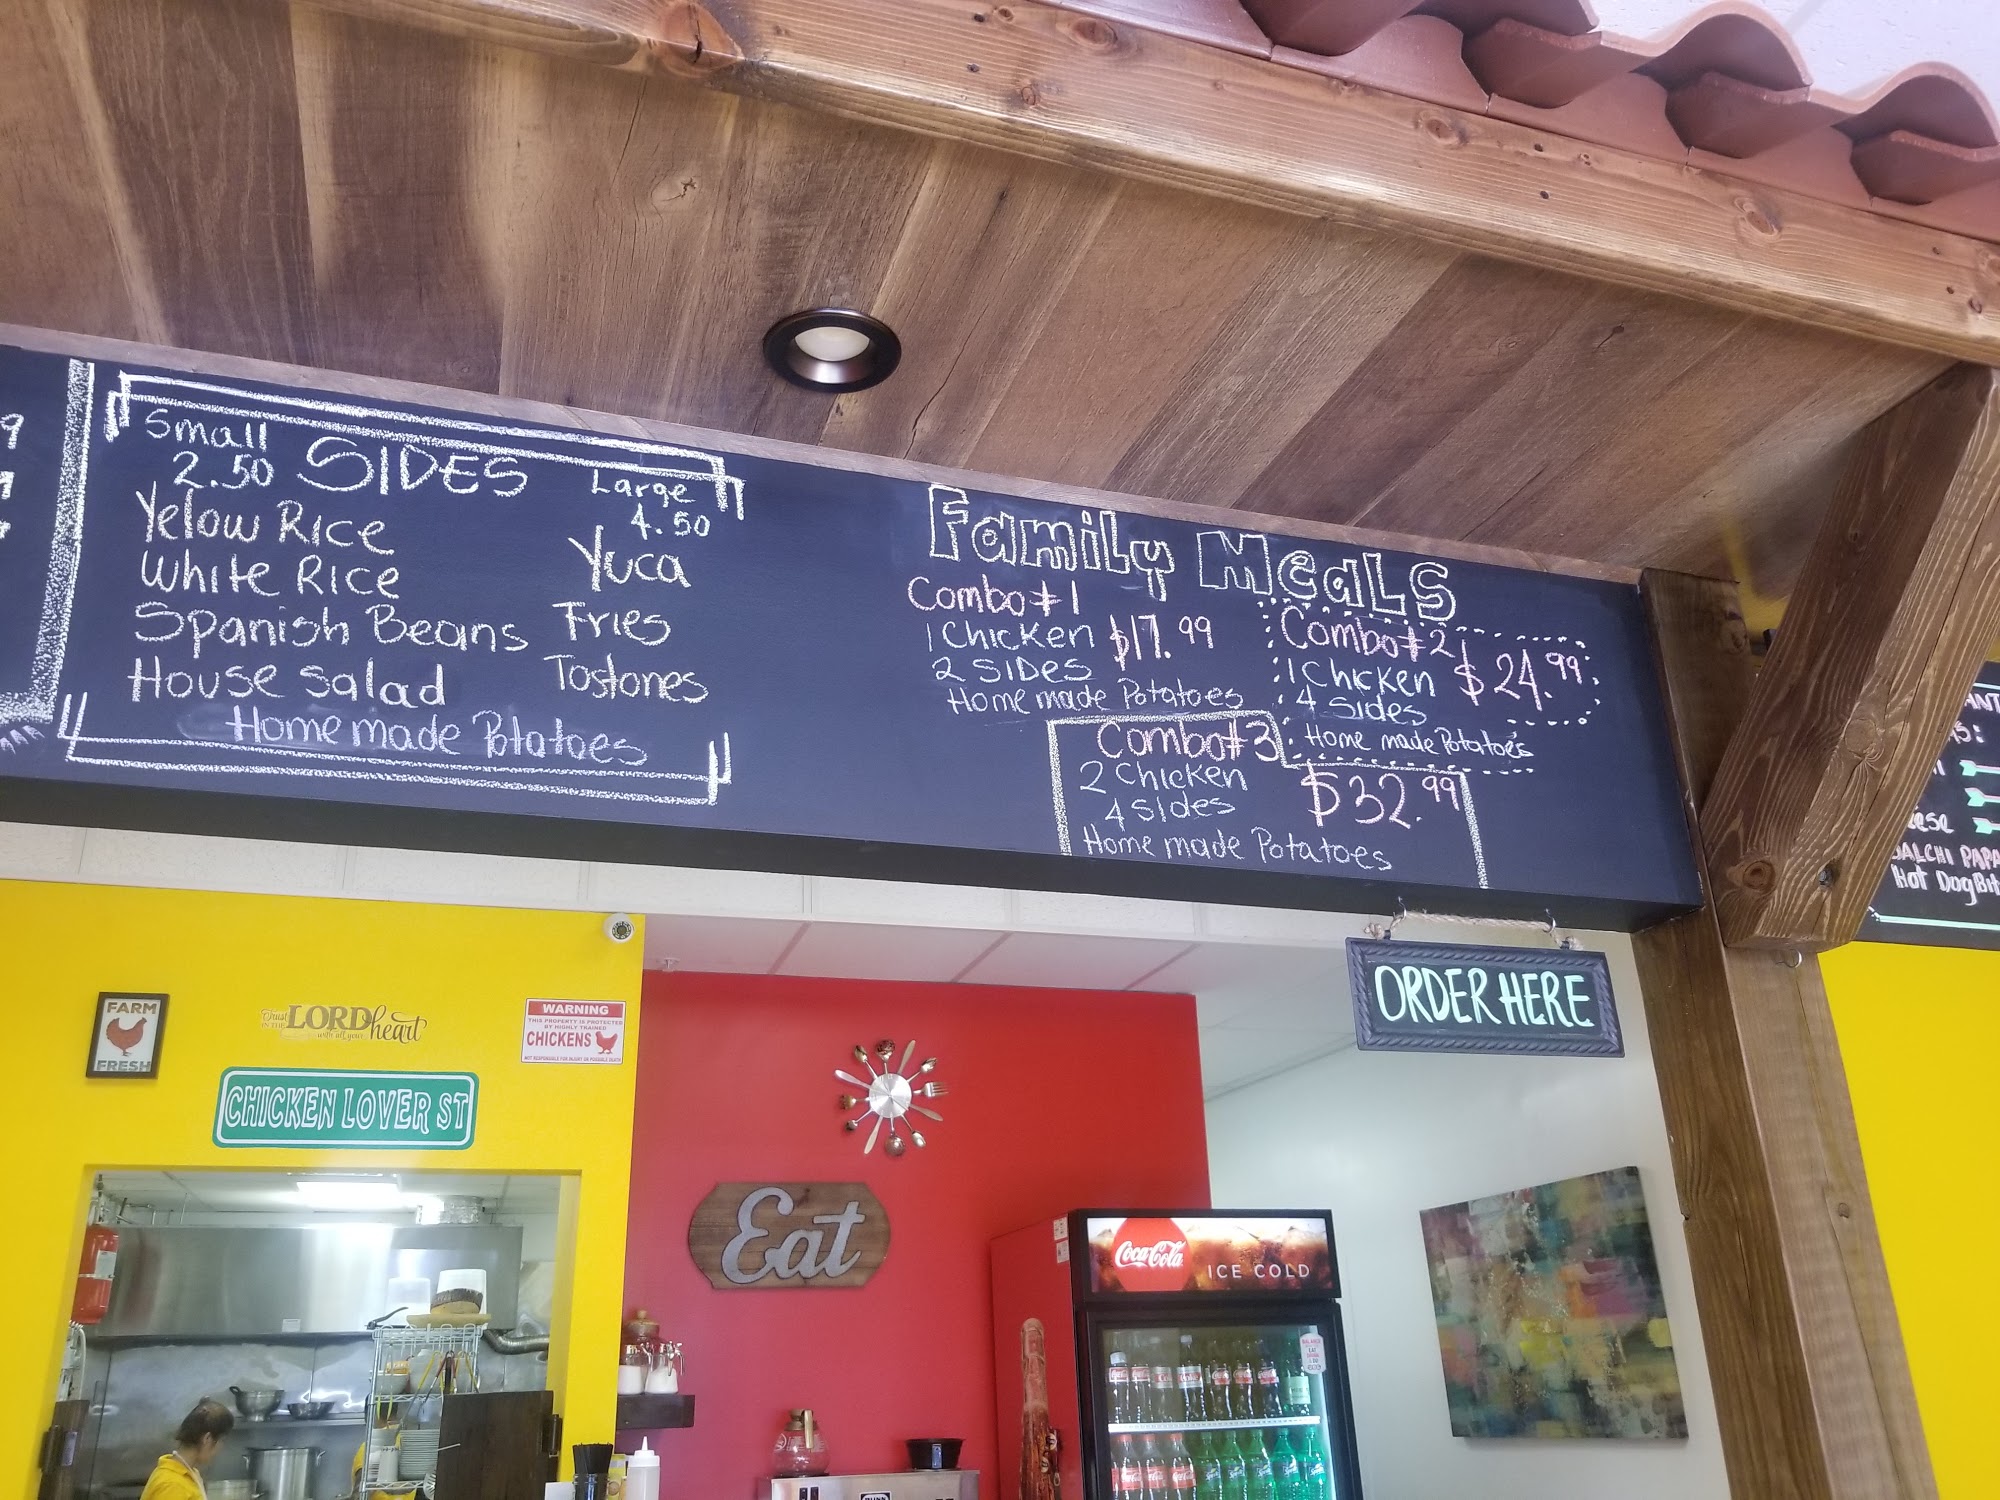 Small
2.50
SIDES
Large
4.50
Yelow Rice
White Rice
Spanish Beans
House Salad
Yuca
Fries
Tostones
Home made Potatoes
Family Meals
Combo #1
1 Chicken
2 SIDES
Home made Potatoes
$17.99
Combo #2
1 Chicken
4 Sides
Home made Potatoes
$24.99
Combo #3
2 Chicken
4 Sides
Home made Potatoes
$32.99
Hot Dog
ORDER HERE
FARM
FRESH
Trust
IN THE LORD
with all your heart
WARNING
THIS PROPERTY IS PROTECTED
BY HIGHLY TRAINED
CHICKENS
NOT RESPONSIBLE FOR INJURY OR POSSIBLE DEATH
CHICKEN LOVER ST
Eat
Coca-Cola
ICE COLD